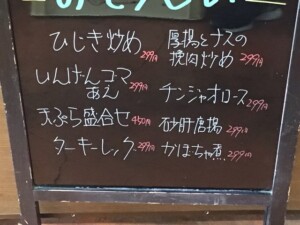 ひじき炒め 299円
いんげんゴマ
あえ 299円
天ぷら盛合せ 450円
ターキーレッグ 299円
厚揚とナスの
挽肉炒め 299円
チンジャオロース 299円
砂肝唐揚 299円
かぼちゃ煮 299円